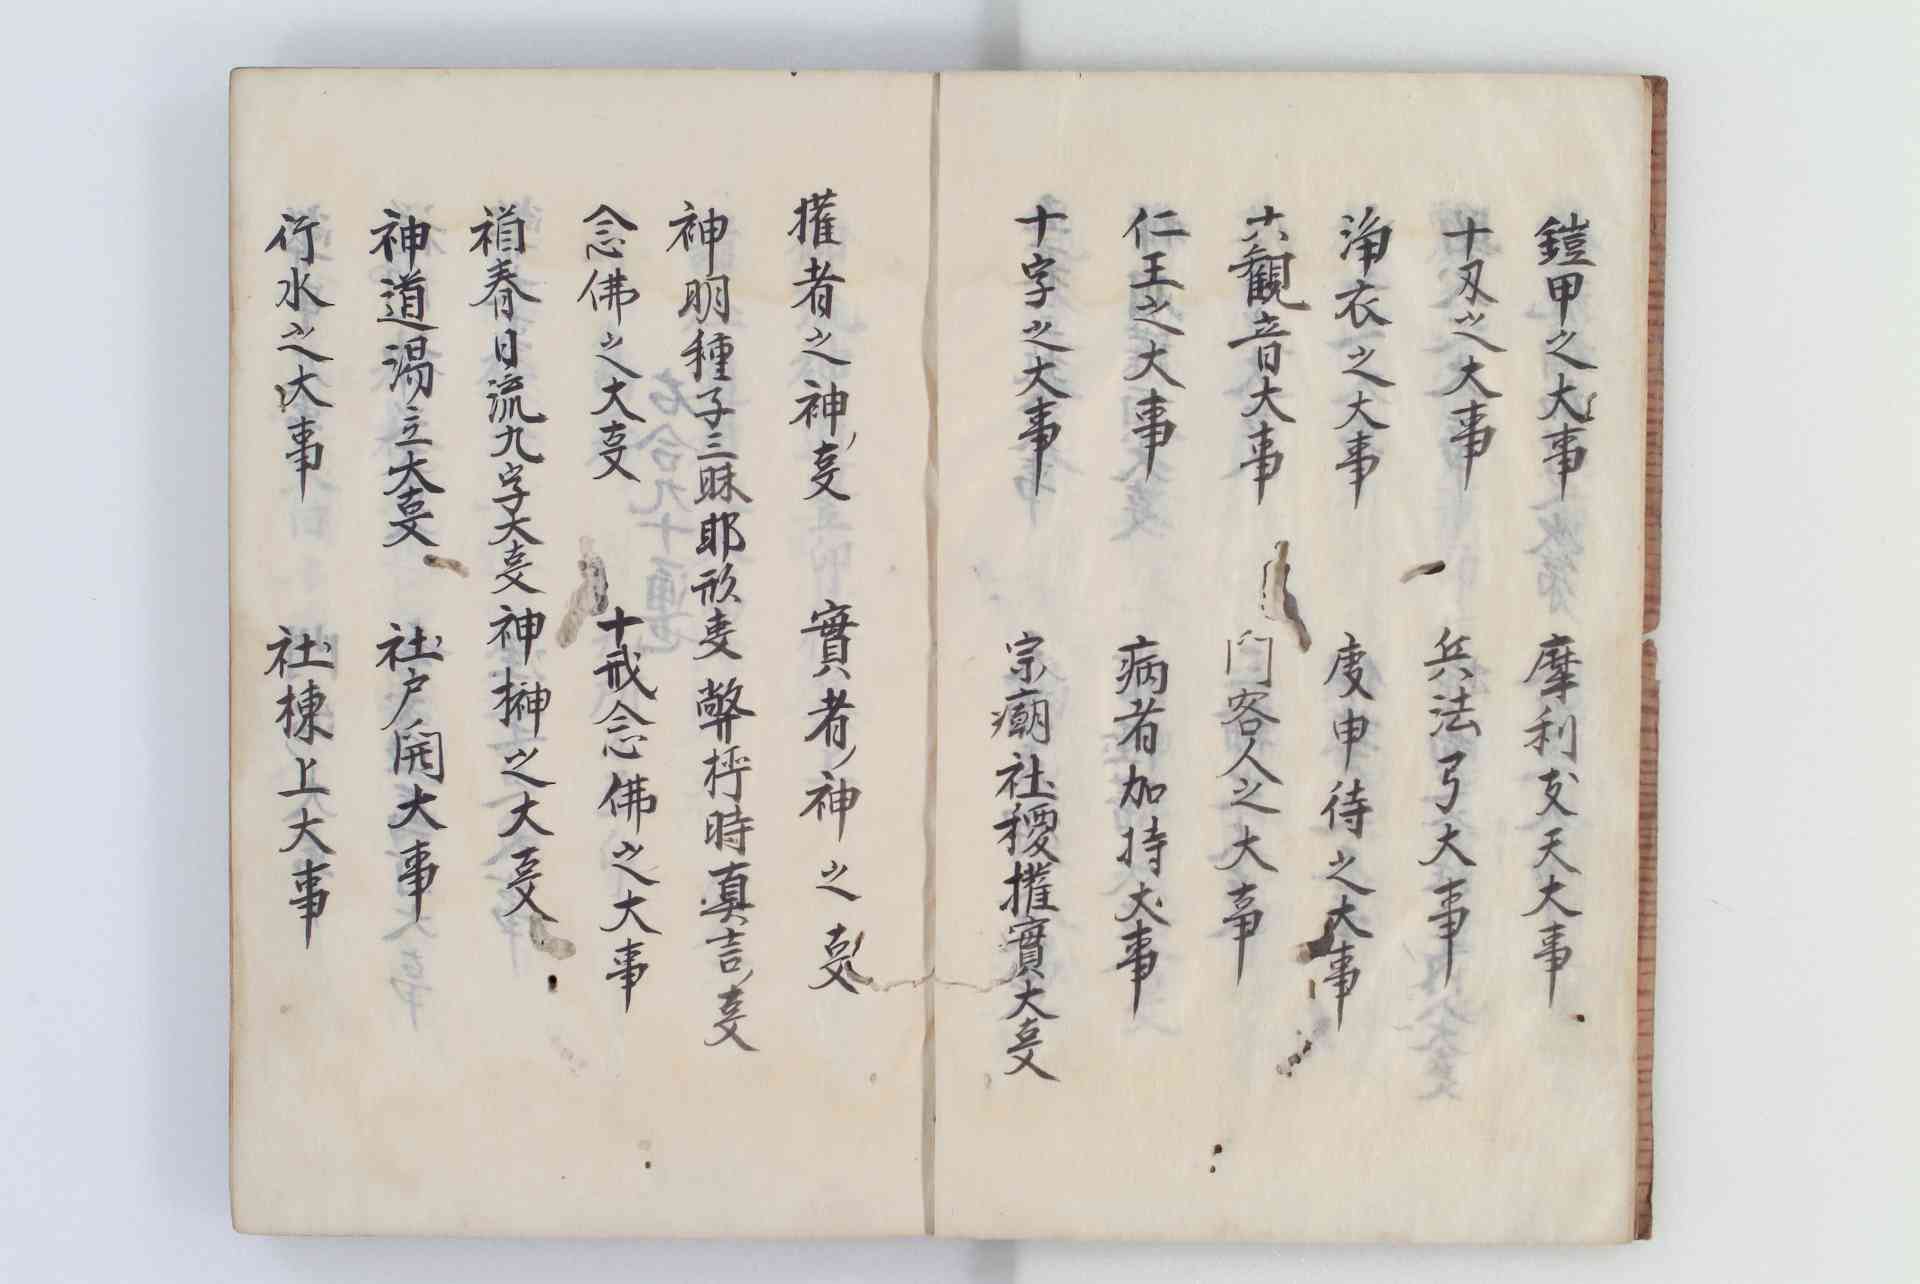 鎧甲之大事　摩利支天大事
十刄之大事　兵法弓大事
浄衣之大事　庚申待之大事
六観音大事　門客人之大事
仁王之大事　病者加持大事
十字之大事　宗廟社稷権實大㕝
権者之神㕝　實者神之㕝
神明種子三昧耶形㕝　弊枰時真言㕝
念佛之大㕝　十戒念佛之大事
春日流九字大㕝　神榊之大㕝
神道湯立大㕝　社戸開大事
行水之大事　社棟上大事